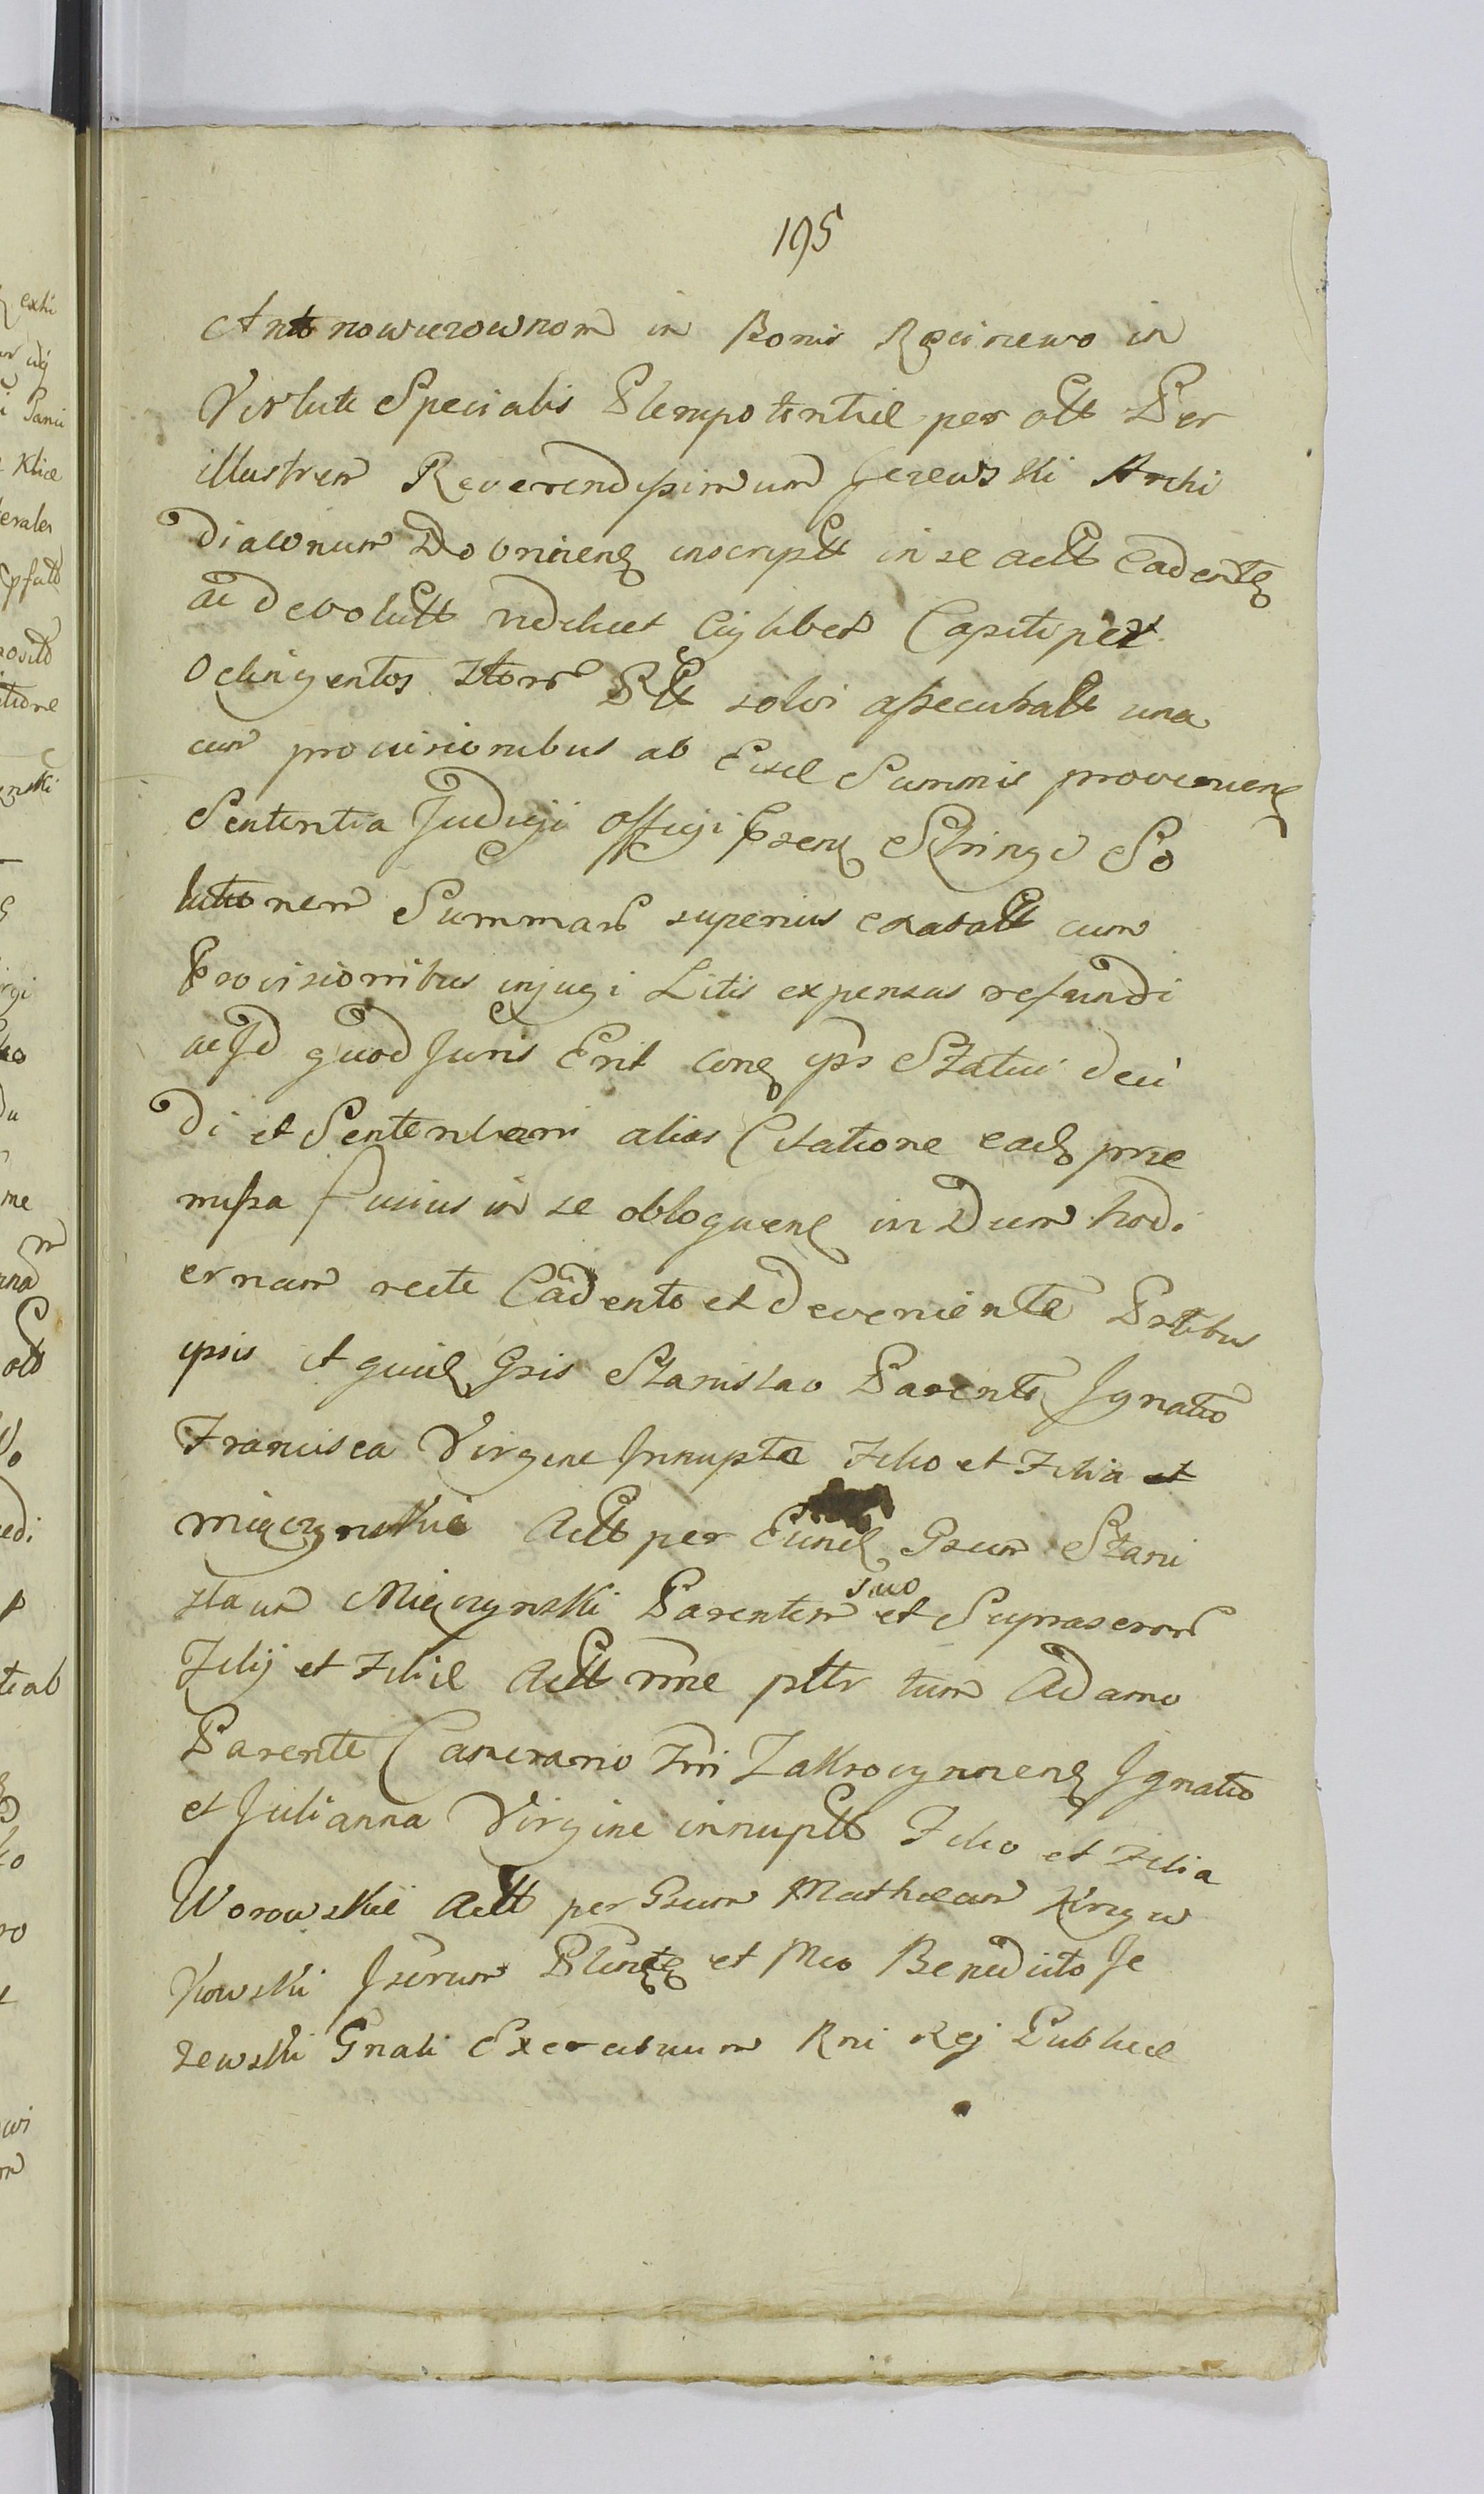 195
Antonowiczownom in Bonis Rycicewo in
Virtute Specialis Plenipotentiæ per olt Per
illustrem Reverendissimum Jezewski Archi
diaconum Dobrinens inscriptt in se actt Cadentes
ac devolutt videlicet Cuilibet Capiti per
Octingentos Ztorr Ptt solvi assecuratt una
cum provisionibus ab Eisd Summis provenien
Sententia Judicij Officji Prsens Stringi So
lutionem Summarr superius exaratt cum
Provisionibus injugi Litis expensas refundi
ac Id quod Juris Erit conq ips Statui deci
di et Sententiari alias Citatione eadq præ
missa fusius in se obloquens in Diem hodi
ernam recte Cadente et deveniente Prtibus
ipsis et quid Gsis Stanislao Parente Ignatio
Francisca Virgine Innupta Filio et Filia et
Mięczynskie Actt per Eund Gsum Stani
slaum Mięczynski Parentem suo et Suprascrorr
Filij et Filiæ Actt nme pttr tum Adamo
Parente Camerario Trri Zakroczymens Ignatio
et Julianna Virgine innuptt Filio et Filia
Worowskie Actt per Gsum Mathæum
kowski Plent et Mco Benedicto Je
zewski Gnali Exercituum Rni Rej Publicæ